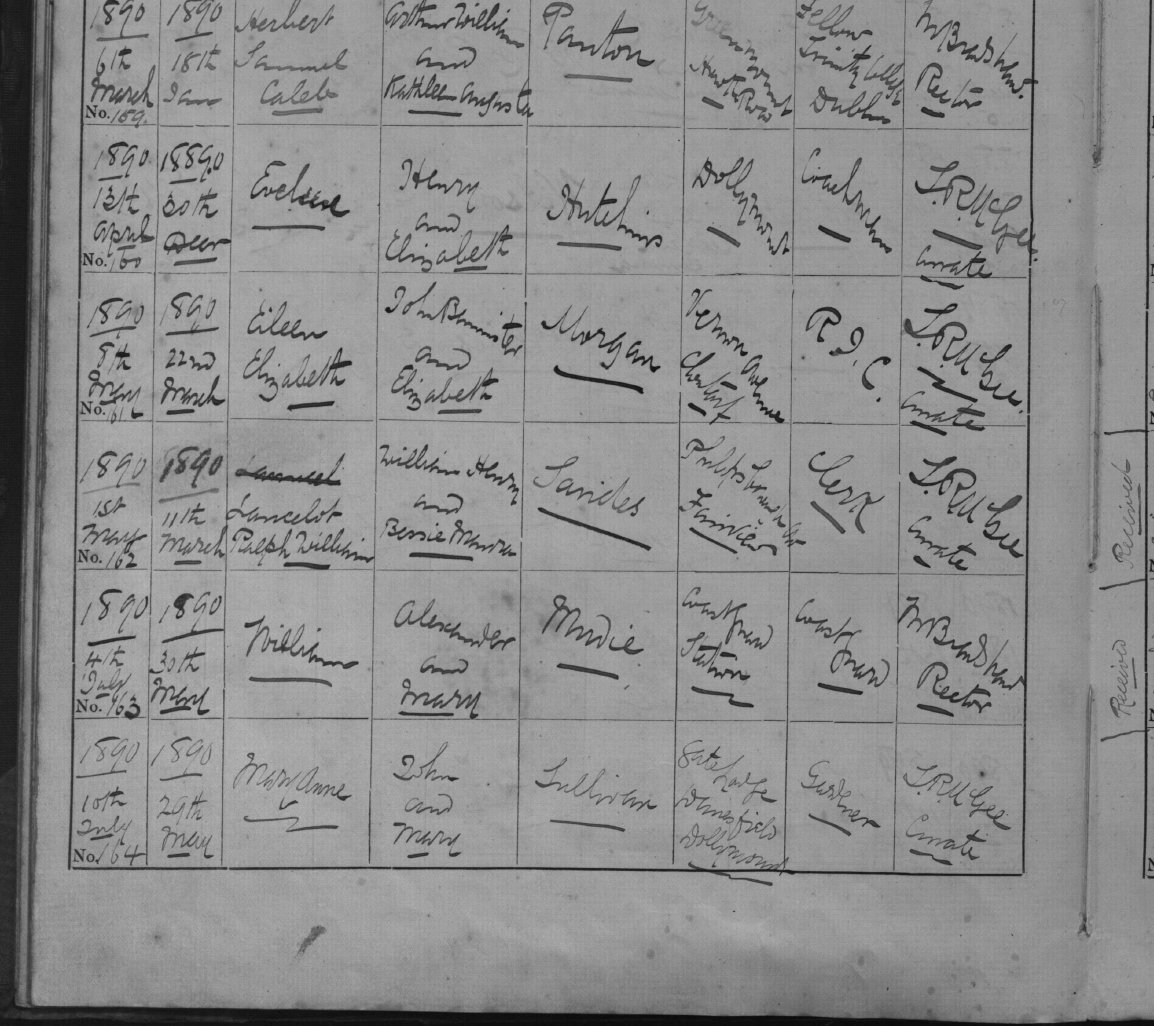 1890 1890 Herbert Arthur William Panton Greenmount Fellow W Bradshaw
6th 18th Samuel and Howth Road Trinity College Rector
March Jan Caleb Kathleen Augusta Dublin
No. 159.
1890 1889.0 Eveleen Henry Hutchins Dollymount Coachman S.R.McGee.
13th 30th and Curate
April Decr Elizabeth
No. 160
1890 1890 Eileen John Bannister Morgan Vernon Avenue R.I.C. S.R.McGee.
8th 22nd Elizabeth and Clontarf Curate
May March Elizabeth
No. 161
1890 1890 William Henry Sandes Clerk S.R.McGee
1st 11th Lancelot and Fairview Curate
May March Ralph William Bessie Maria
No. 162
1890 1890 William Alexander Mudie Coastguard Coast W Bradshaw
4th 30th and Station Guard Rector
July May Mary
No. 163
1890 1890 Mary Anne John Sullivan Gate Lodge Gardener S.R.McGee
10th 29th and Danesfield Curate
July May Mary Dollymount
No. 164
Received
Received